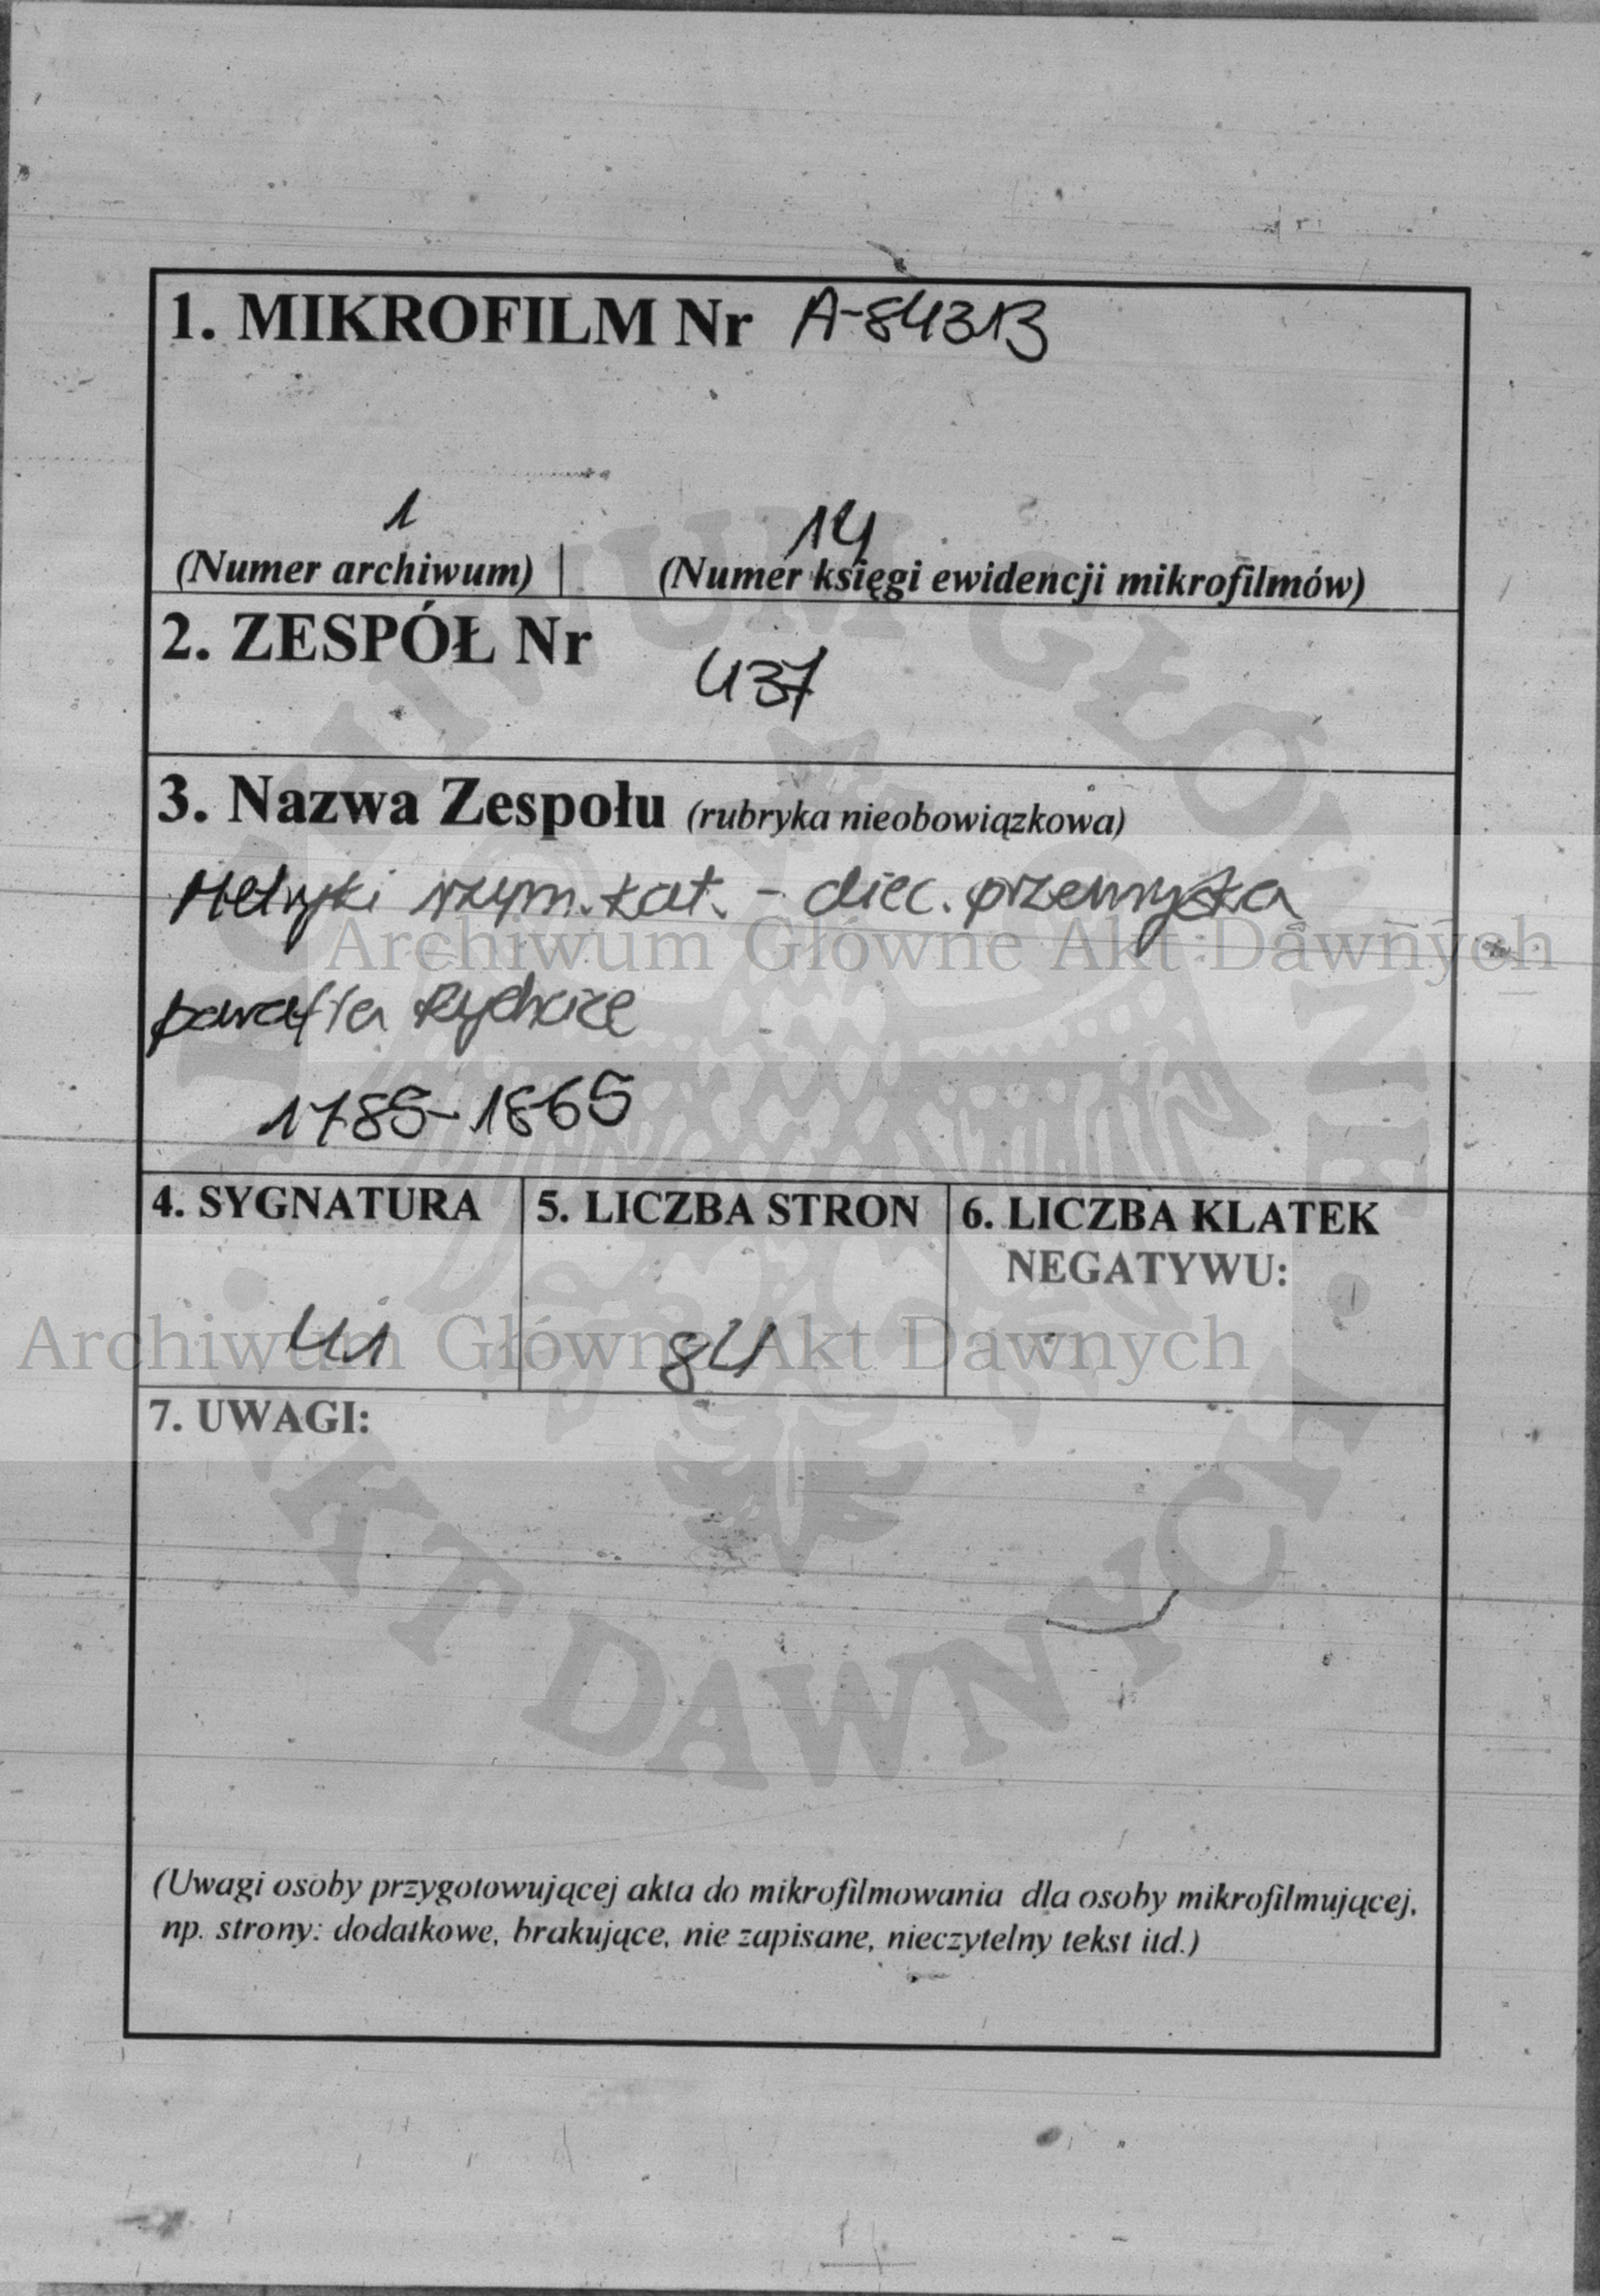 1. MIKROFILM Nr A-84313
1 14
(Numer archiwum) (Numer księgi ewidencji mikrofilmów)
2. ZESPÓŁ Nr
437
3. Nazwa Zespołu (rubryka nieobowiązkowa)
Metryki rzym.kat. - diec. przemyska
Archiwum Główne Akt Dawnych
parafia Rychcice
1785-1865
4. SYGNATURA 5. LICZBA STRON 6. LICZBA KLATEK
NEGATYWU:
41 84
Archiwum Główne Akt Dawnych
7. UWAGI:
(Uwagi osoby przygotowującej akta do mikrofilmowania dla osoby mikrofilmującej,
np. strony: dodatkowe, brakujące, nie zapisane, nieczytelny tekst itd.)
ARCHIWUM GŁÓWNE AKT DAWNYCH